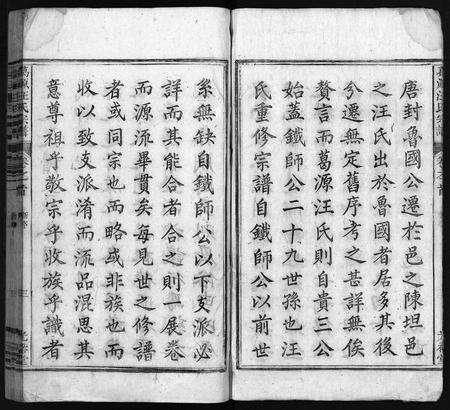 唐封魯國公遷於邑之陳坦邑
之汪氏出於魯國者居多其後
分遷無定舊序考之甚詳無俟
贅言而葛源汪氏則自貴三公
始蓋鐵師公二十九世孫也汪
氏重修宗譜自鐵師公以前世
系無缺自鐵師公以下支派必
詳而其能合者合之則一展卷
而源流畢貫矣每見世之修譜
者或同宗也而略或非族也而
收以致支派淆而流品混思其
意尊祖乎敬宗乎收族乎識者